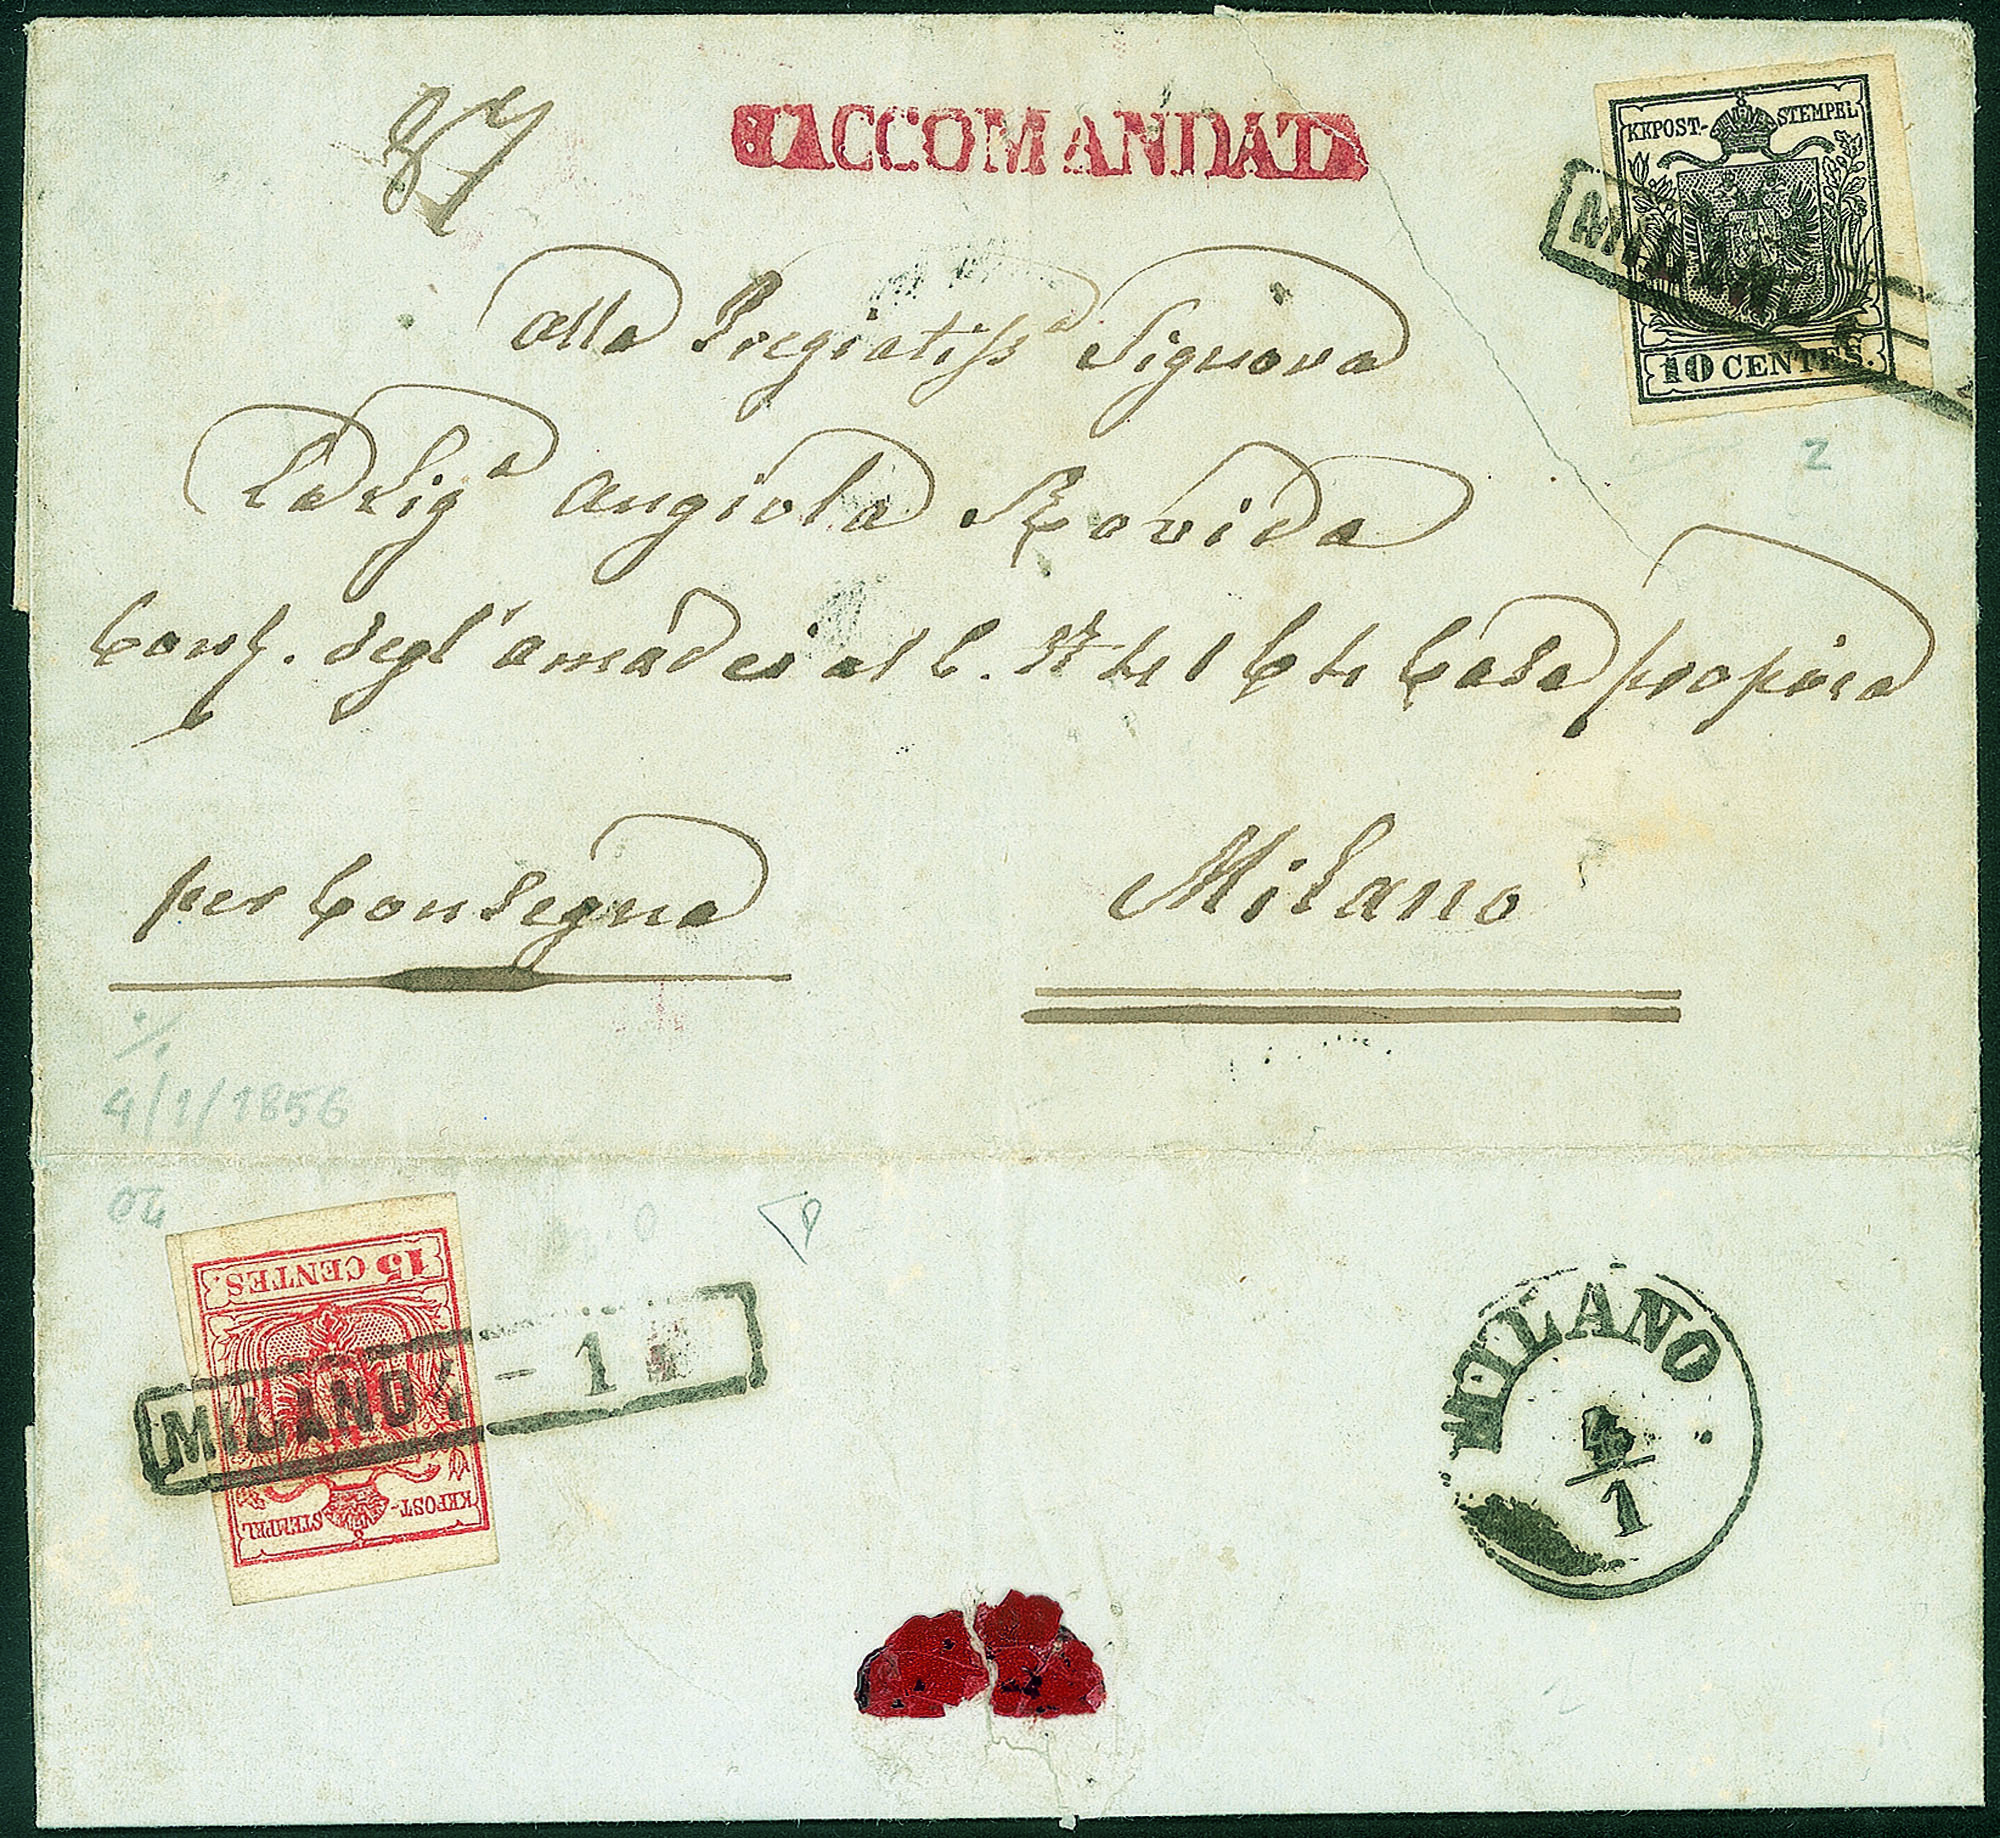 87
RACCOMANDATA
KKPOST-STEMPEL
10 CENTES.
MILANO
2
Alla Pregiatiss.a Signora
La Sig.a Angiola Rovida
Cont. degl'Amadei al C. N.
Casa propria
per Consegna
Milano
4/1/1856
15 CENTES.
KKPOST-STEMPEL
MILANO 4 - 1
MILANO
4/1